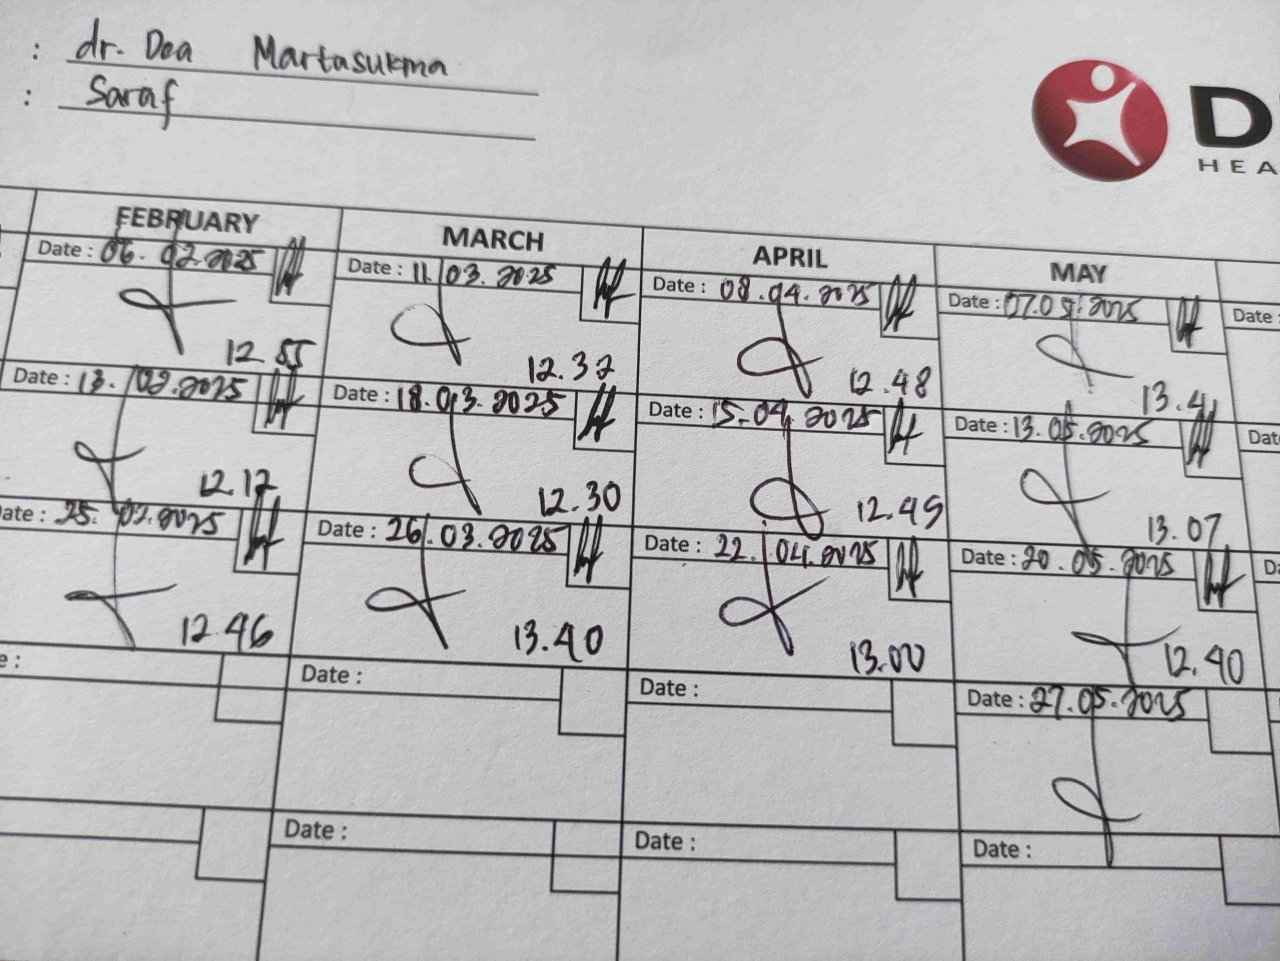 : dr. Dea Martasukma
: Saraf
D
HEA
FEBRUARY MARCH APRIL MAY
Date : 06. 02.2025 Date : 11.03.2025 Date : 08.04.2025 Date : 07.05.2025 Date :
12.55 12.32 12.48 13.41
Date : 13. 02.2025 Date : 18.03.2025 Date : 15.04.2025 Date : 13.05.2025 Dat
12.12 12.30 12.49 13.07
ate : 25. 02.2025 Date : 26.03.2025 Date : 22.04.2025 Date : 20.05.2025 Da
12.46 13.40 13.00 12.40
e : Date : Date : Date : 27.05.2025
Date : Date : Date :